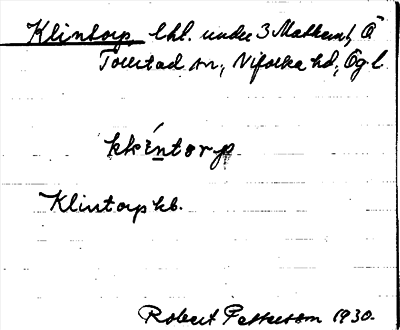 Klintorp lht. under 3 Mathem, Ö
Tollstad sn, Vifolka hd, Ög l.
kkíntorp
Klintorp kb.
Robert Pettersson 1930.